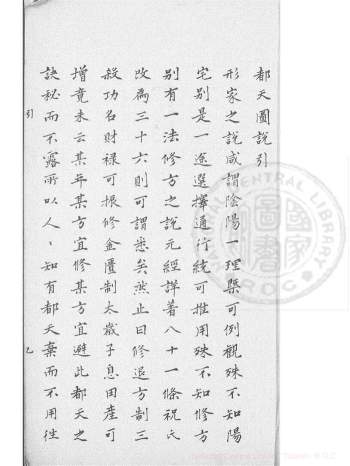 都天圖說引
形家之說咸謂陰陽一理槩可例觀殊不知陽
宅別是一途選擇通行統可推用殊不知修方
別有一法修方之說元經詳著八十一條祝氏
改為三十六則可謂悉矣然止曰修退方制三
殺功名財祿可振修金匱制太歲子息田產可
增竟未云某年某方宜修某方宜避此都天之
訣秘而不露所以人〻知有都天棄而不用徃
引
乙